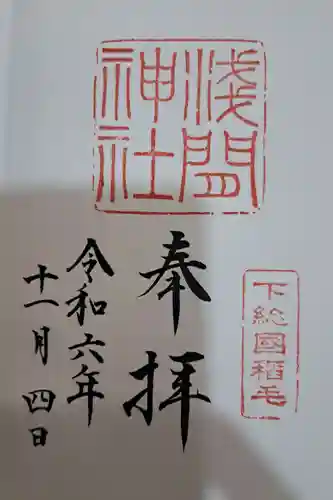 浅間
神社
下総國稲毛
奉拝
令和六年
十一月四日